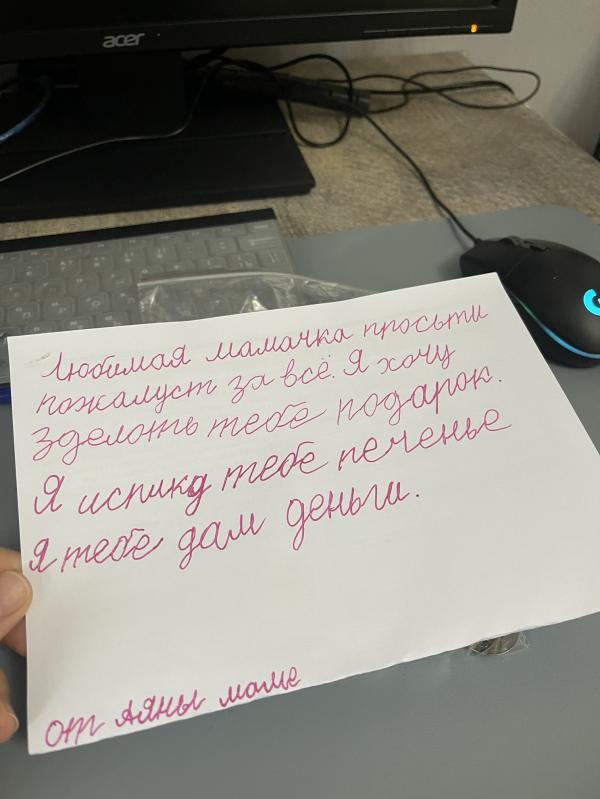 acer
Любимая мамачка просьти
пожалуст за всё. Я хочу
зделоть тебе подарок.
Я испику тебе печенье
Я тебе дам деньги.
от Аяны маме
G